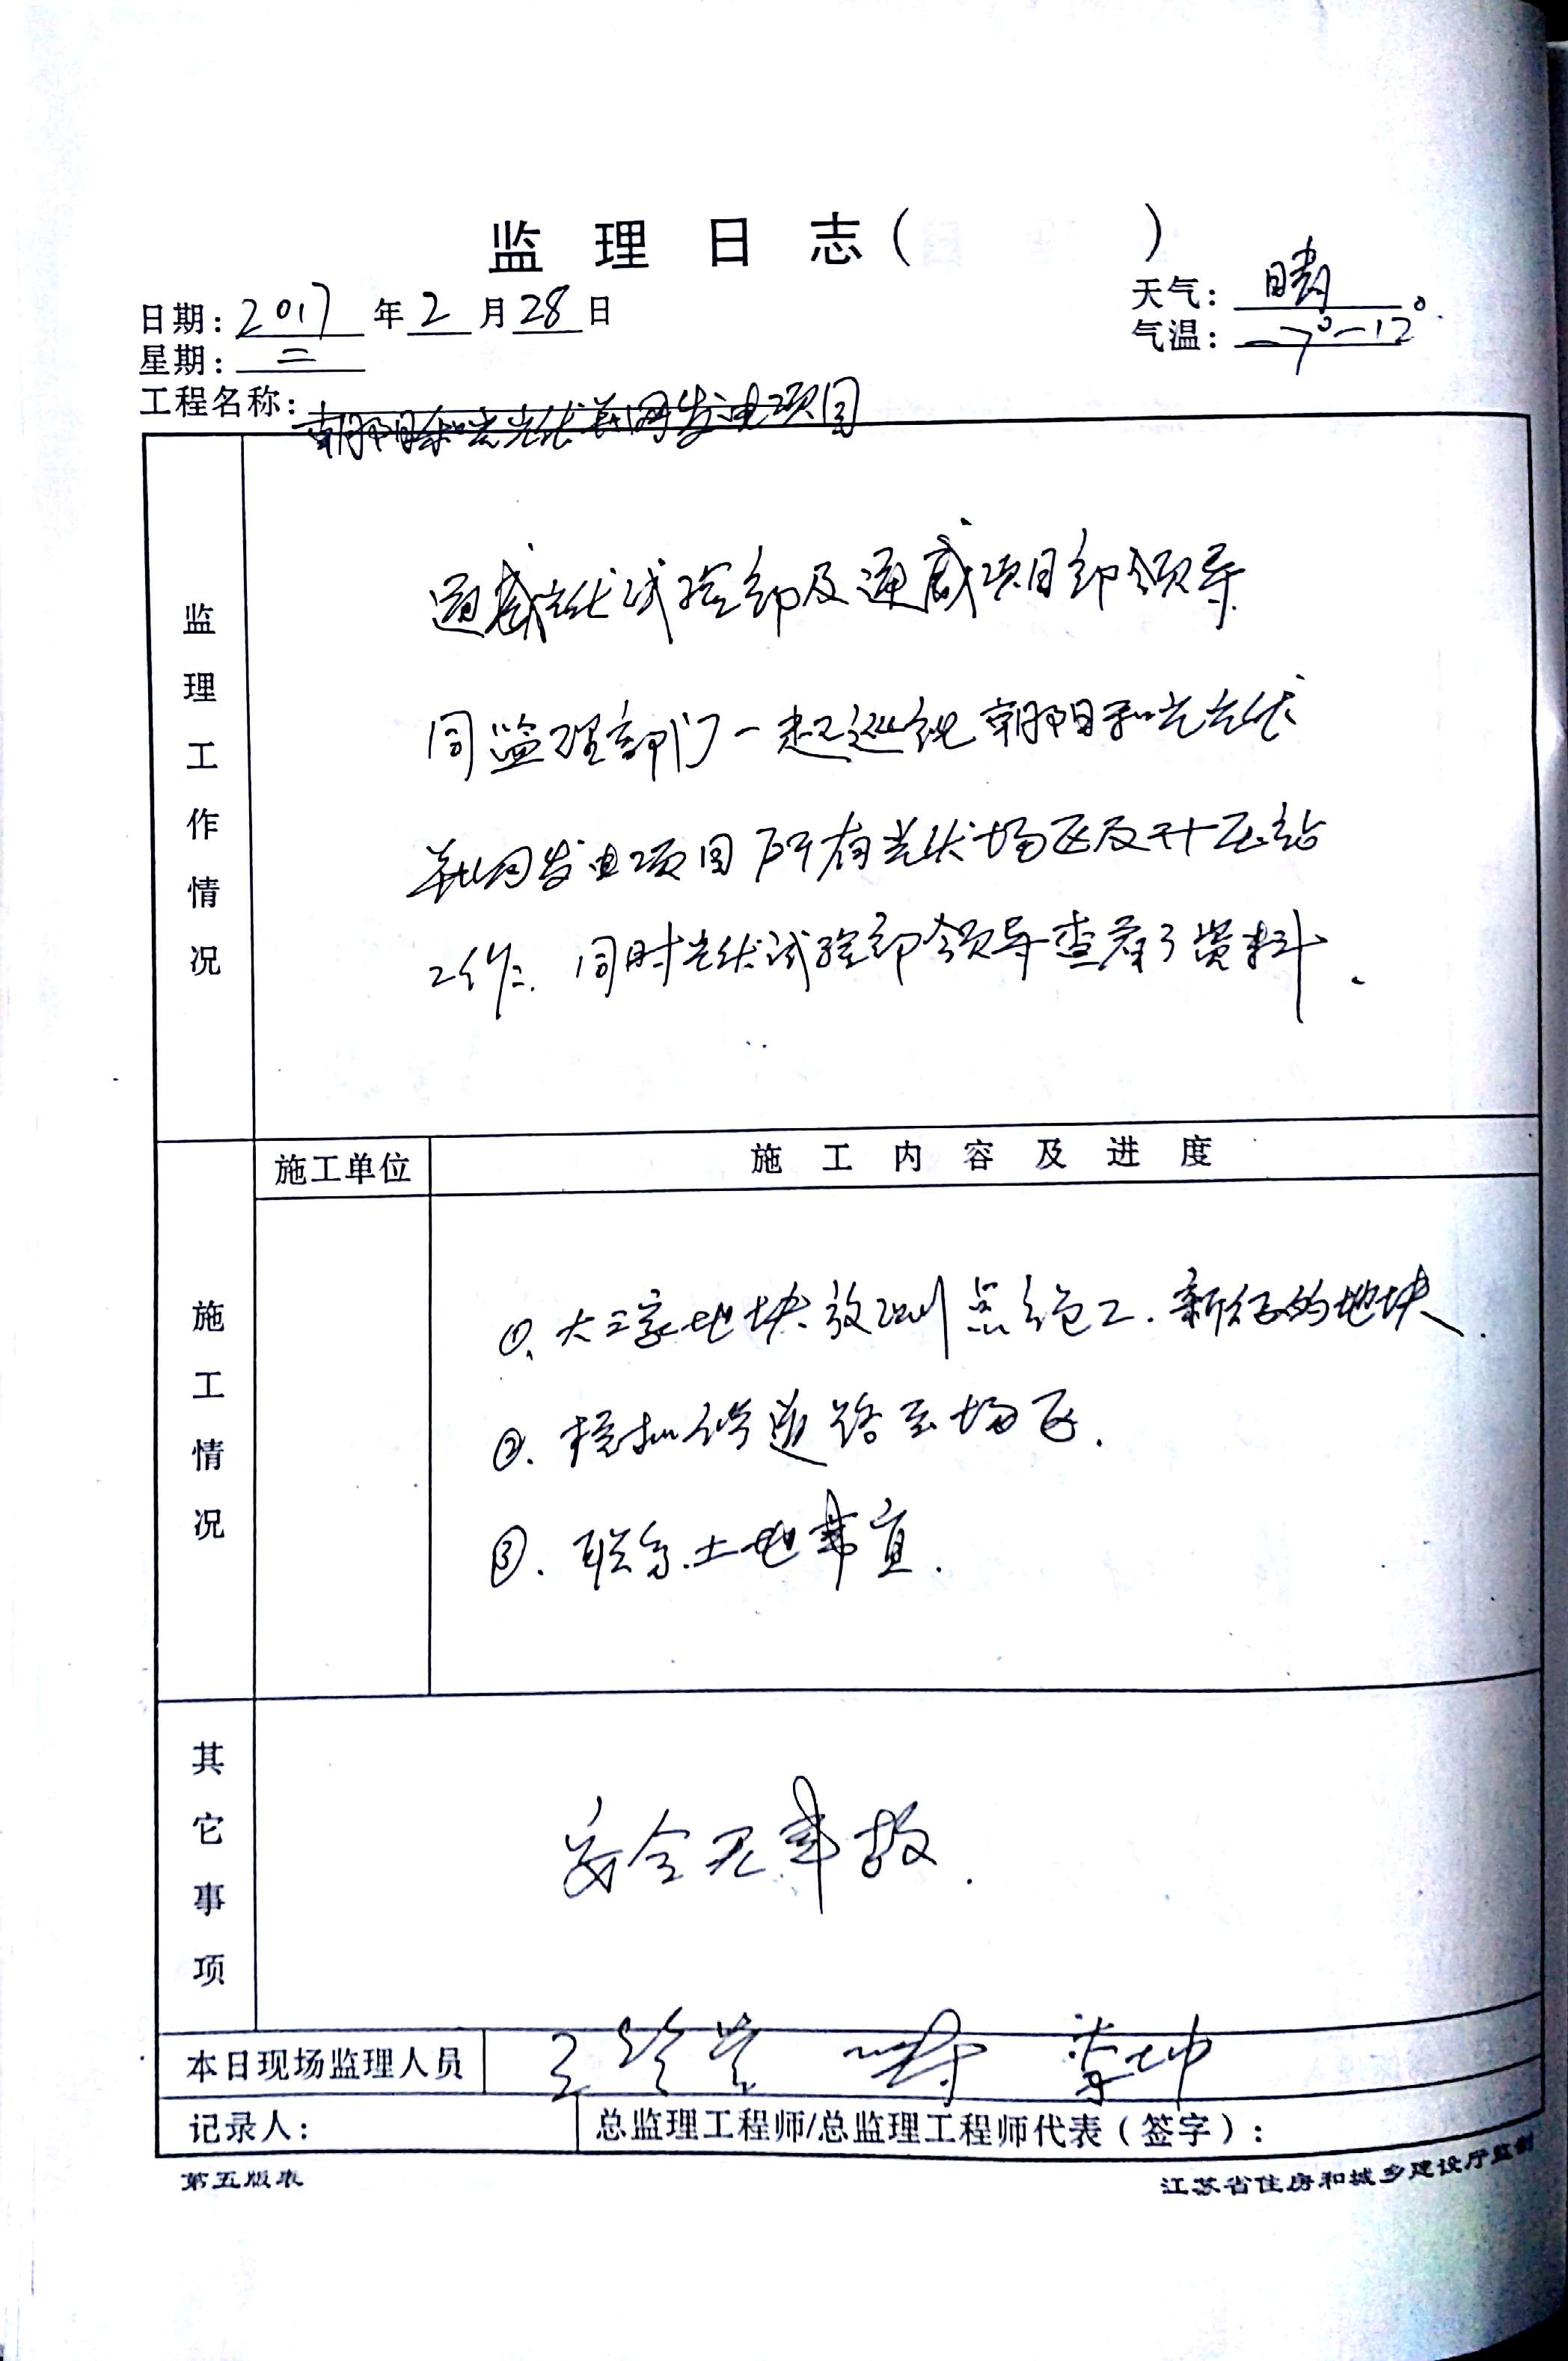 监理日志（ ）
日期：2017年2月28日
天气：晴
星期：二
气温：-7°-12°
工程名称：朝阳和光光伏并网发电项目
监理工作情况
通威光伏试验部及通威项目部领导
同监理部门一起巡视朝阳和光光伏
并网发电项目所有光伏场区及升压站
工作. 同时光伏试验部领导查看了资料.
施工单位
施工内容及进度
施工情况
①. 大三家地块放测 施工. 新征的地块.
②. 模拟修道路至场区.
③. 联系土地事宜.
其它事项
安全无事故.
本日现场监理人员
记录人：
总监理工程师/总监理工程师代表（签字）：
第五版表
江苏省住房和城乡建设厅监制